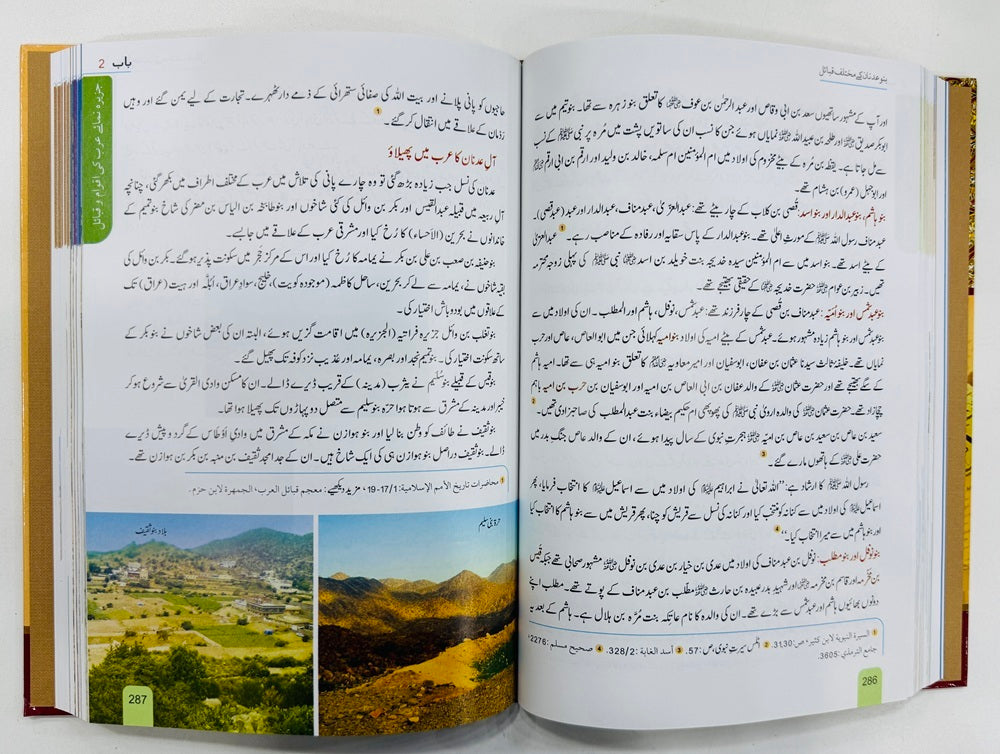 بنو عدنان کے مختلف قبائل
اور آپ کے مشہور ساتھیوں سعد بن ابی وقاص اور عبدالرحمٰن بن عوف ﷠ کا تعلق بنو زہرہ سے تھا۔ بنو تیم میں سے
ابوبکر صدیق ﷜ اور طلحہ بن عبیداللہ ﷜ نمایاں ہوئے جن کا نسب ان کی ساتویں پشت میں مُرہ پر نبی ﷺ کے نسب
سے مل جاتا ہے۔ یقظہ بن مرہ کے بیٹے مخزوم کی اولاد میں ام المؤمنین ام سلمہ، خالد بن ولید اور ارقم بن ابی ارقم ﷢
اور ابوجہل (عمرو) بن ہشام تھے۔
بنو ہاشم، بنو عبدالدار اور بنو اسد: قُصی بن کلاب کے چار بیٹے تھے: عبدالعزیٰ، عبدمناف، عبدالدار اور عبد (عبدقصی)۔
عبدمناف رسول اللہ ﷺ کے مورثِ اعلیٰ تھے۔ بنو عبدالدار کے پاس سقایہ اور رفادہ کے مناصب رہے۔ 1 عبدالعزیٰ
کے بیٹے اسد تھے۔ بنو اسد میں سے ام المؤمنین سیدہ خدیجہ بنت خویلد بن اسد ﷞ نبی ﷺ کی پہلی زوجہ محترمہ
تھیں۔ زبیر بن عوام ﷜ حضرت خدیجہ ﷞ کے حقیقی بھتیجے تھے۔
بنو عبدشمس اور بنو اُمیہ: عبدمناف بن قُصی کے چار فرزند تھے: عبدشمس، نوفل، ہاشم اور المطلب۔ ان کی اولاد میں سے
بنو عبدشمس اور بنو ہاشم زیادہ مشہور ہوئے۔ عبدشمس کے بیٹے امیہ کی اولاد بنو امیہ کہلائی جن میں ابو العاص، عاص اور حرب
نمایاں تھے۔ خلیفہ ثالث سیدنا عثمان بن عفان، ابوسفیان اور امیر معاویہ ﷢ کا تعلق بنو امیہ ہی سے تھا۔ امیہ ہاشم
کے سگے بھتیجے تھے اور حضرت عثمان ﷜ کے والد عفان بن ابی العاص بن امیہ اور ابوسفیان بن حرب بن امیہ باہم
چچازاد تھے۔ حضرت عثمان ﷜ کی والدہ ارویٰ نبی ﷺ کی پھوپھی ام حکیم بیضاء بنت عبدالمطلب کی صاحبزادی تھیں۔ 2
سعید بن عاص بن سعید بن عاص بن امیہ ﷜ ہجرت نبوی کے سال پیدا ہوئے، ان کے والد عاص جنگ بدر میں
حضرت علی ﷜ کے ہاتھوں مارے گئے۔ 3
رسول اللہ ﷺ کا ارشاد ہے: ”اللہ تعالٰی نے ابراہیم ﷤ کی اولاد میں سے اسماعیل ﷤ کا انتخاب فرمایا، پھر
اسماعیل ﷤ کی اولاد میں سے کنانہ کو منتخب کیا اور کنانہ کی نسل سے قریش کو چنا، پھر قریش میں سے بنو ہاشم کا انتخاب کیا
اور بنو ہاشم میں سے میرا انتخاب کیا۔“ 4
بنو نوفل اور بنو مطلب: نوفل بن عبدمناف کی اولاد میں عدی بن خیار بن عدی بن نوفل ﷜ مشہور صحابی تھے جبکہ قیس
بن مخرمہ اور قاسم بن مخرمہ اور شہید بدر عبیدہ بن حارث ﷢ مطلب بن عبدمناف کے پوتے تھے۔ مطلب اپنے
دونوں بھائیوں ہاشم اور عبدشمس سے بڑے تھے۔ ان کی والدہ کا نام عاتکہ بنت مُرّہ بن ہلال ہے۔ ہاشم کے بعد یہ
1 السيرة النبوية لابن كثير، ص:31,30. 2 اٹلس سیرت نبوی، ص:57. 3 أسد الغابة:328/2. 4 صحيح مسلم:2276،
جامع الترمذي:3605.
286
باب 2
جزیرہ نمائے عرب کی اقوام و قبائل
حاجیوں کو پانی پلانے اور بیت اللہ کی صفائی ستھرائی کے ذمے دار ٹھہرے۔ تجارت کے لیے یمن گئے اور وہیں
رَدْمان کے علاقے میں انتقال کر گئے۔ 1
آلِ عدنان کا عرب میں پھیلاؤ
عدنان کی نسل جب زیادہ بڑھ گئی تو وہ چارے پانی کی تلاش میں عرب کے مختلف اطراف میں بکھر گئی، چنانچہ
آلِ ربیعہ میں قبیلہ عبدالقیس اور بکر بن وائل کی کئی شاخوں اور بنو طابخہ بن الیاس بن مضر کی شاخ بنو تمیم کے
خاندانوں نے بحرین (الأحساء) کا رُخ کیا اور مشرقی عرب کے علاقے میں جا بسے۔
بنو حنیفہ بن صعب بن علی بن بکر نے یمامہ کا رُخ کیا اور اس کے مرکز حَجر میں سکونت پذیر ہو گئے۔ بکر بن وائل کی
بقیہ شاخوں نے، یمامہ سے لے کر بحرین، ساحل کاظمہ (موجودہ کویت)، خلیج، سوادِ عراق، اُبُلّہ اور ہیت (عراق) تک
کے علاقوں میں بود و باش اختیار کی۔
بنو تغلب بن وائل جزیرہ فراتیہ (الجزیرہ) میں اقامت گزیں ہوئے، البتہ ان کی بعض شاخوں نے بنو بکر کے
ساتھ سکونت اختیار کی۔ بنو تمیم نجد اور بصرہ، یمامہ اور عذیب نزد کوفہ تک پھیل گئے۔
بنو قیس کے قبیلے بنو سُلَیم نے یثرب (مدینہ) کے قریب ڈیرے ڈالے۔ ان کا مسکن وادی القریٰ سے شروع ہو کر
خیبر اور مدینہ کے مشرق سے ہوتا ہوا حرّہ بنو سلیم سے متصل دو پہاڑوں تک پھیلا ہوا تھا۔
بنو ثقیف نے طائف کو وطن بنا لیا اور بنو ہوازن نے مکہ کے مشرق میں وادی اَوْطاس کے گرد و پیش ڈیرے
ڈالے۔ بنو ثقیف دراصل بنو ہوازن ہی کی ایک شاخ ہیں۔ ان کے جد امجد ثقیف بن منبہ بن بکر بن ہوازن تھے۔
1 محاضرات تاريخ الأمم الإسلامية:17/1-19، مزید دیکھیے: معجم قبائل العرب، الجمهرة لابن حزم.
حرۃ بنی سلیم
بلاد بنو ثقیف
287